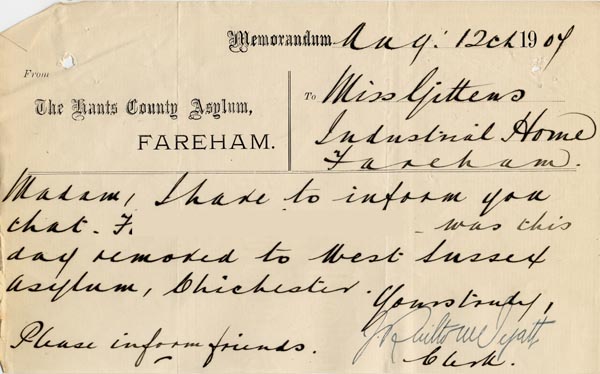 Memorandum Aug: 12th 1907
From
The Hants County Asylum,
FAREHAM.
To Miss Gittens
Industrial Home
Fareham.
Madam, I have to inform you
that F. was this
day removed to West Sussex
Asylum, Chichester.
Yours truly,
Please inform friends.
Clerk.